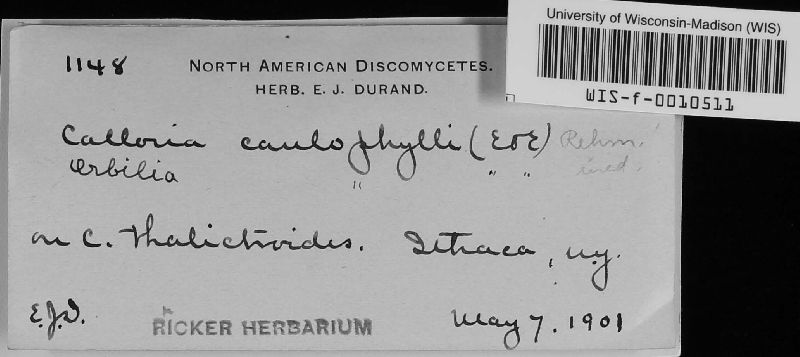 University of Wisconsin-Madison (WIS)
WIS-f-0010511
1148 NORTH AMERICAN DISCOMYCETES.
HERB. E. J. DURAND.
Calloria caulophylli (E&E) Rehm.
Orbilia " " " ined.
on C. thalictroides. Ithaca, N.Y.
E.J.D. RICKER HERBARIUM May 7, 1901